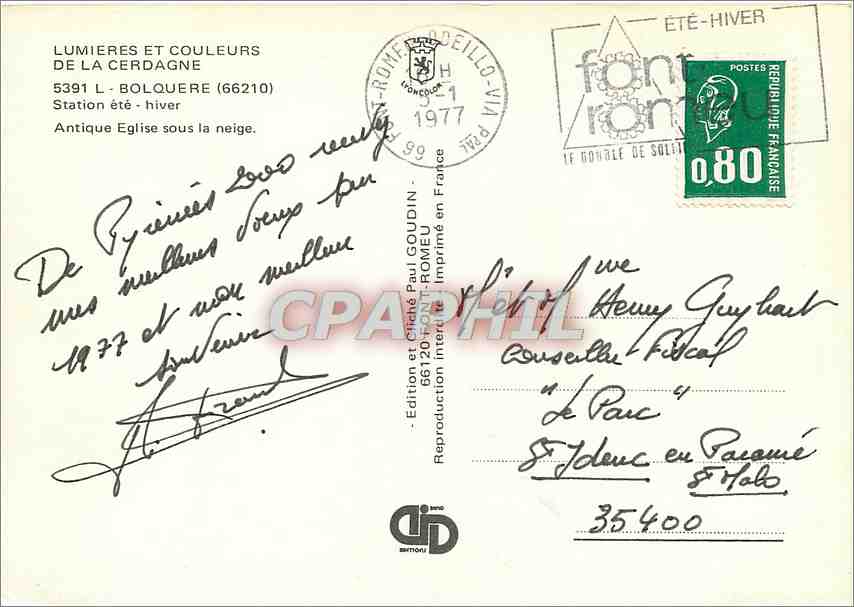 LUMIERES ET COULEURS
DE LA CERDAGNE
5391 L - BOLQUERE (66210)
Station été - hiver
Antique Eglise sous la neige.
LYONCOLOR
66 FONT-ROMEU-ODEILLO-VIA PPAL
H
5-1
1977
ÉTÉ-HIVER
font
romeu
LE DOUBLE DE SOLEIL
POSTES
RÉPUBLIQUE FRANÇAISE
0,80
De Pyrénées 2000
mes meilleurs vœux pour
1977 et mon meilleur
souvenir
- Edition et Cliché Paul GOUDIN -
66120 FONT-ROMEU
Reproduction interdite - Imprimé en France
CPAPHIL
M et Mme Henry Guyhart
Conseiller-Fiscal
"Le Parc"
St Ideuc en Paramé
St Malo
35400
EDITIONS